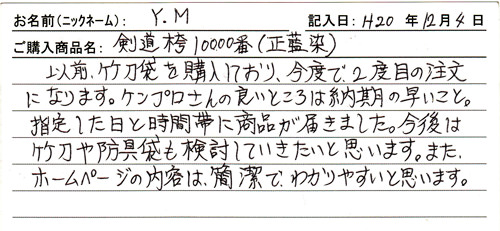 お名前(ニックネーム): Y.M 記入日: H20 年 12月 4日
ご購入商品名: 剣道袴10000番(正藍染)
以前、竹刀袋を購入しており、今度で、2度目の注文
になります。ケンプロさんの良いところは納期の早いこと。
指定した日と時間帯に商品が届きました。今後は
竹刀や防具袋も検討していきたいと思います。また、
ホームページの内容は、簡潔で、わかりやすいと思います。